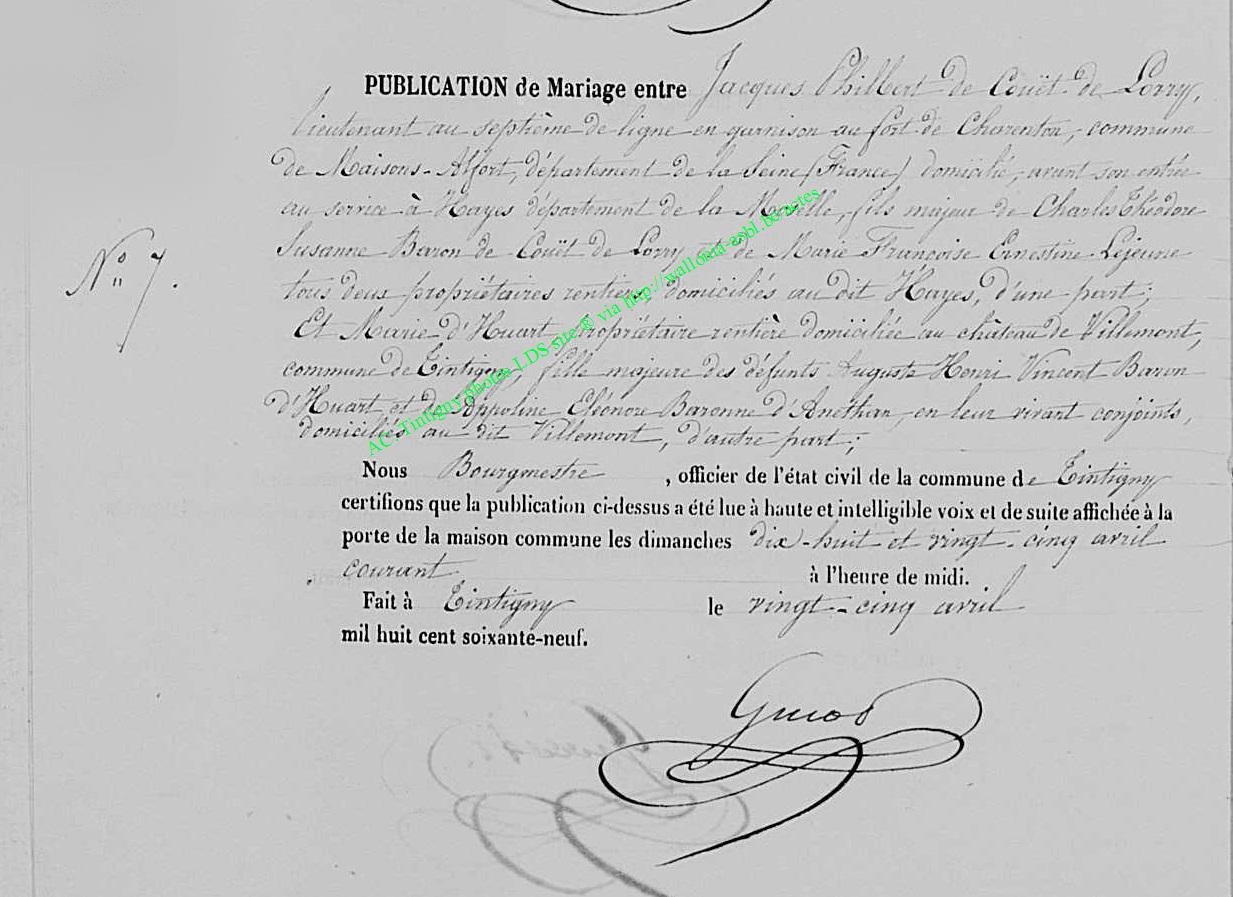 PUBLICATION de Mariage entre Jacques Philbert de Couët de Lorry,
lieutenant au septième de ligne en garnison au fort de Charenton, commune
de Maisons-Alfort, département de la Seine (France) domicilié, avant son entrée
au service à Hayes département de la Moselle, fils majeur de Charles Théodore
Susanne Baron de Couët de Lorry et de Marie Françoise Ernestine Lejeune
tous deux propriétaires rentiers domiciliés au dit Hayes, d'une part;
Et Marie d'Huart, propriétaire rentière domiciliée au château de Villemont,
commune de Tintigny, fille majeure des défunts Auguste Henri Vincent Baron
d'Huart et de Appoline Eléonore Baronne d'Anethan, en leur vivant conjoints,
domiciliés au dit Villemont, d'autre part;
N° 7.
Nous Bourgmestre , officier de l'état civil de la commune de Tintigny
certifions que la publication ci-dessus a été lue à haute et intelligible voix et de suite affichée à la
porte de la maison commune les dimanches dix-huit et vingt-cinq avril
courant à l'heure de midi.
Fait à Tintigny le vingt-cinq avril
mil huit cent soixante-neuf.
AC. Tintigny photos LDS site © via http://wallonia-asbl.be/actes